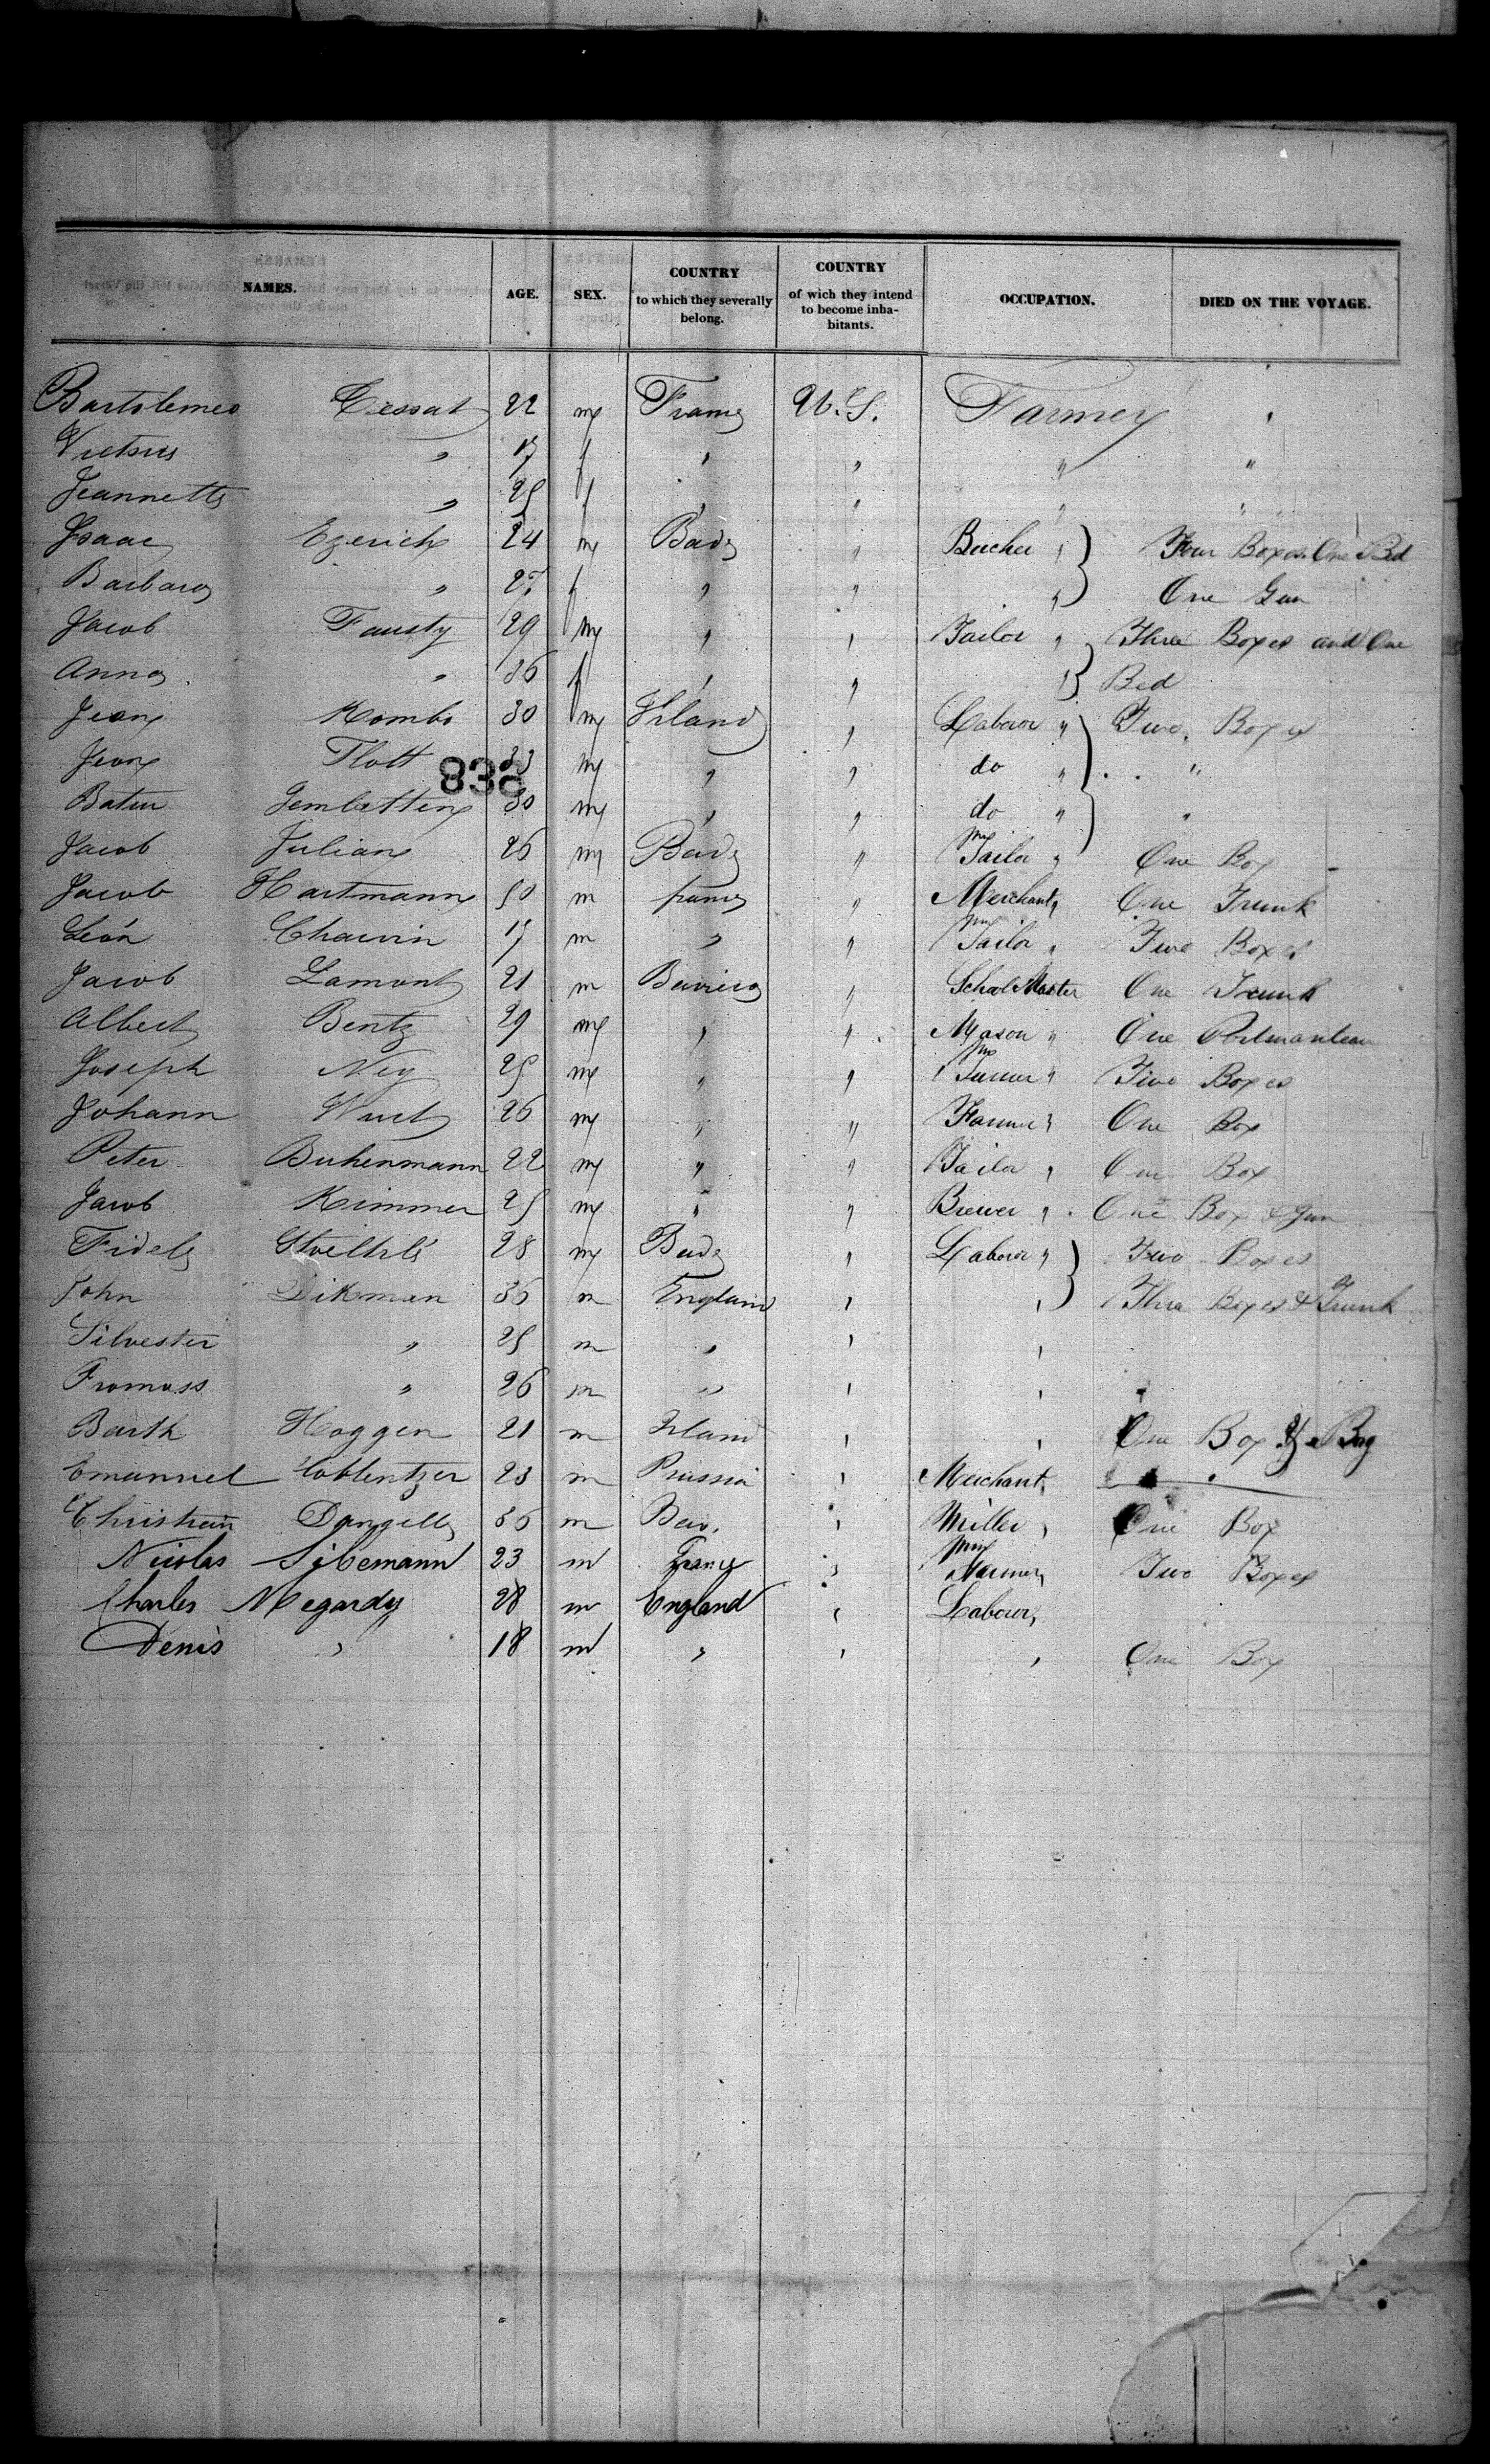 NAMES. AGE. SEX. COUNTRY to which they severally belong. COUNTRY of wich they intend to become inha-bitants. OCCUPATION. DIED ON THE VOYAGE.
Bartolemeo Cessat 22 m France U.S. Farmer "
" 17 f " " " "
Jeannette " 25 f " " " "
Isaac Ezerich 24 m Bade " Bucher " Four Boxes One Bed
Barbara " 27 f " " " One Gun
Jacob Fausty 29 m " " Tailor " Three Boxes and One
Anna " 36 f " " " Bed
Jean Kombi 30 m Irland " Labour " Two Boxes
Jean Tlott 33 m " " do " "
838
Gembetten 30 m " " do " "
Jacob Julian 26 m Bade " Tailor " One Box
Jacob Hartmann 50 m france " Merchant " One Trunk
Léon Chauvin 17 m " " Tailor " Two Boxes
Jacob Lamont 21 m Baviera " Schol Master One Trunk
Albert Bentz 29 m " " Mason " One Portmanteau
Joseph Ney 25 m " " " Two Boxes
Johann 26 m " " Farmer " One Box
Peter Buhenmann 22 m " " Tailor " One Box
Jacob Kimmer 25 m " " Brewer " One Box & Gun
Fidele 28 m Bade " Labour " Two Boxes
John Dikman 36 m England " " Three Boxes & Trunk
Silvester " 25 m " " "
" 26 m " " "
Barth Hoggen 21 m Irland " " One Box & Bag
Emanuel Coblentzer 23 m Prussia " Merchant "
Christian Dangelle 36 m Bav. " Miller " One Box
Nicolas Sibemann 23 m France " Two Boxes
Charles Megardy 28 m England " Labour,
Denis " 18 m " " " One Box